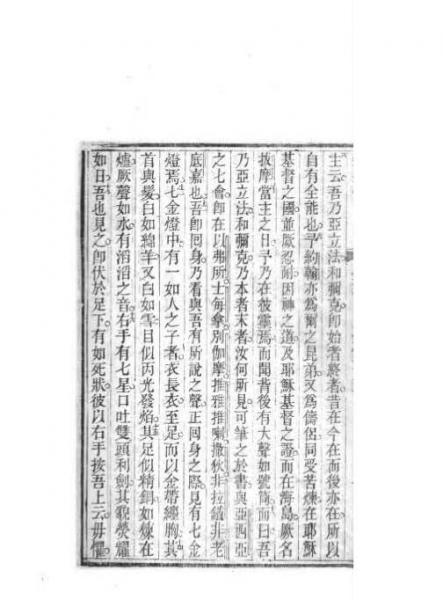 主云吾乃亞立法和彌克卽始者終者昔在今在而後亦在所以
自有全能也予約翰亦爲爾之昆弟又爲儔侶同受苦煉在耶穌
基督之國並厥忍耐因神之道及耶穌基督之證而在海島厥名
拔摩當主之日予乃在彼靈焉而聞背後有大聲如號筒而曰吾
乃亞立法和彌克乃本者末者汝何所見可筆之於書與亞西亞
之七會卽在以弗所士每拿別伽摩推雅推喇撒狄非拉鐵非老
底嘉也吾卽囘身乃看與吾有所說之聲正囘身之際見有七金
燈焉七金燈中有一如人之子者衣長衣至足而以金帶纏胸其
首與髮白如綿羊又白如雪目似丙光發焰其足似精銅如煉在
爐厥聲如水有滔滔之音右手有七星口吐雙頭利劍其貌熒耀
如日吾也見之卽伏於足下有如死狀彼以右手按吾上云毋懼